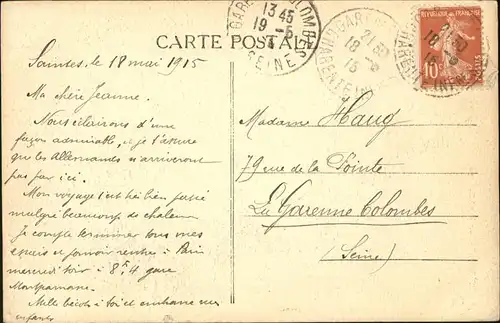 CARTE POSTALE
Saintes, le 18 mai 1915
Ma chère Jeanne.
Nous éclairons d'une
façon admirable, et je t'assure
que les Allemands n'arriveront
pas par ici.
Mon voyage s'est très bien passé
malgré beaucoup de chaleur
Je compte terminer tous mes
et pouvoir rentrer à Paris
mercredi soir à 8h,4 gare
Montparnasse.
Mille bécots à toi et embrasse les
enfants
Madame Haug
79 rue de la Pointe
La Garenne Colombes
(Seine)
13 45
19 -5
SEINE
21 30
18 -5
15
21 30
18 -5
15
10